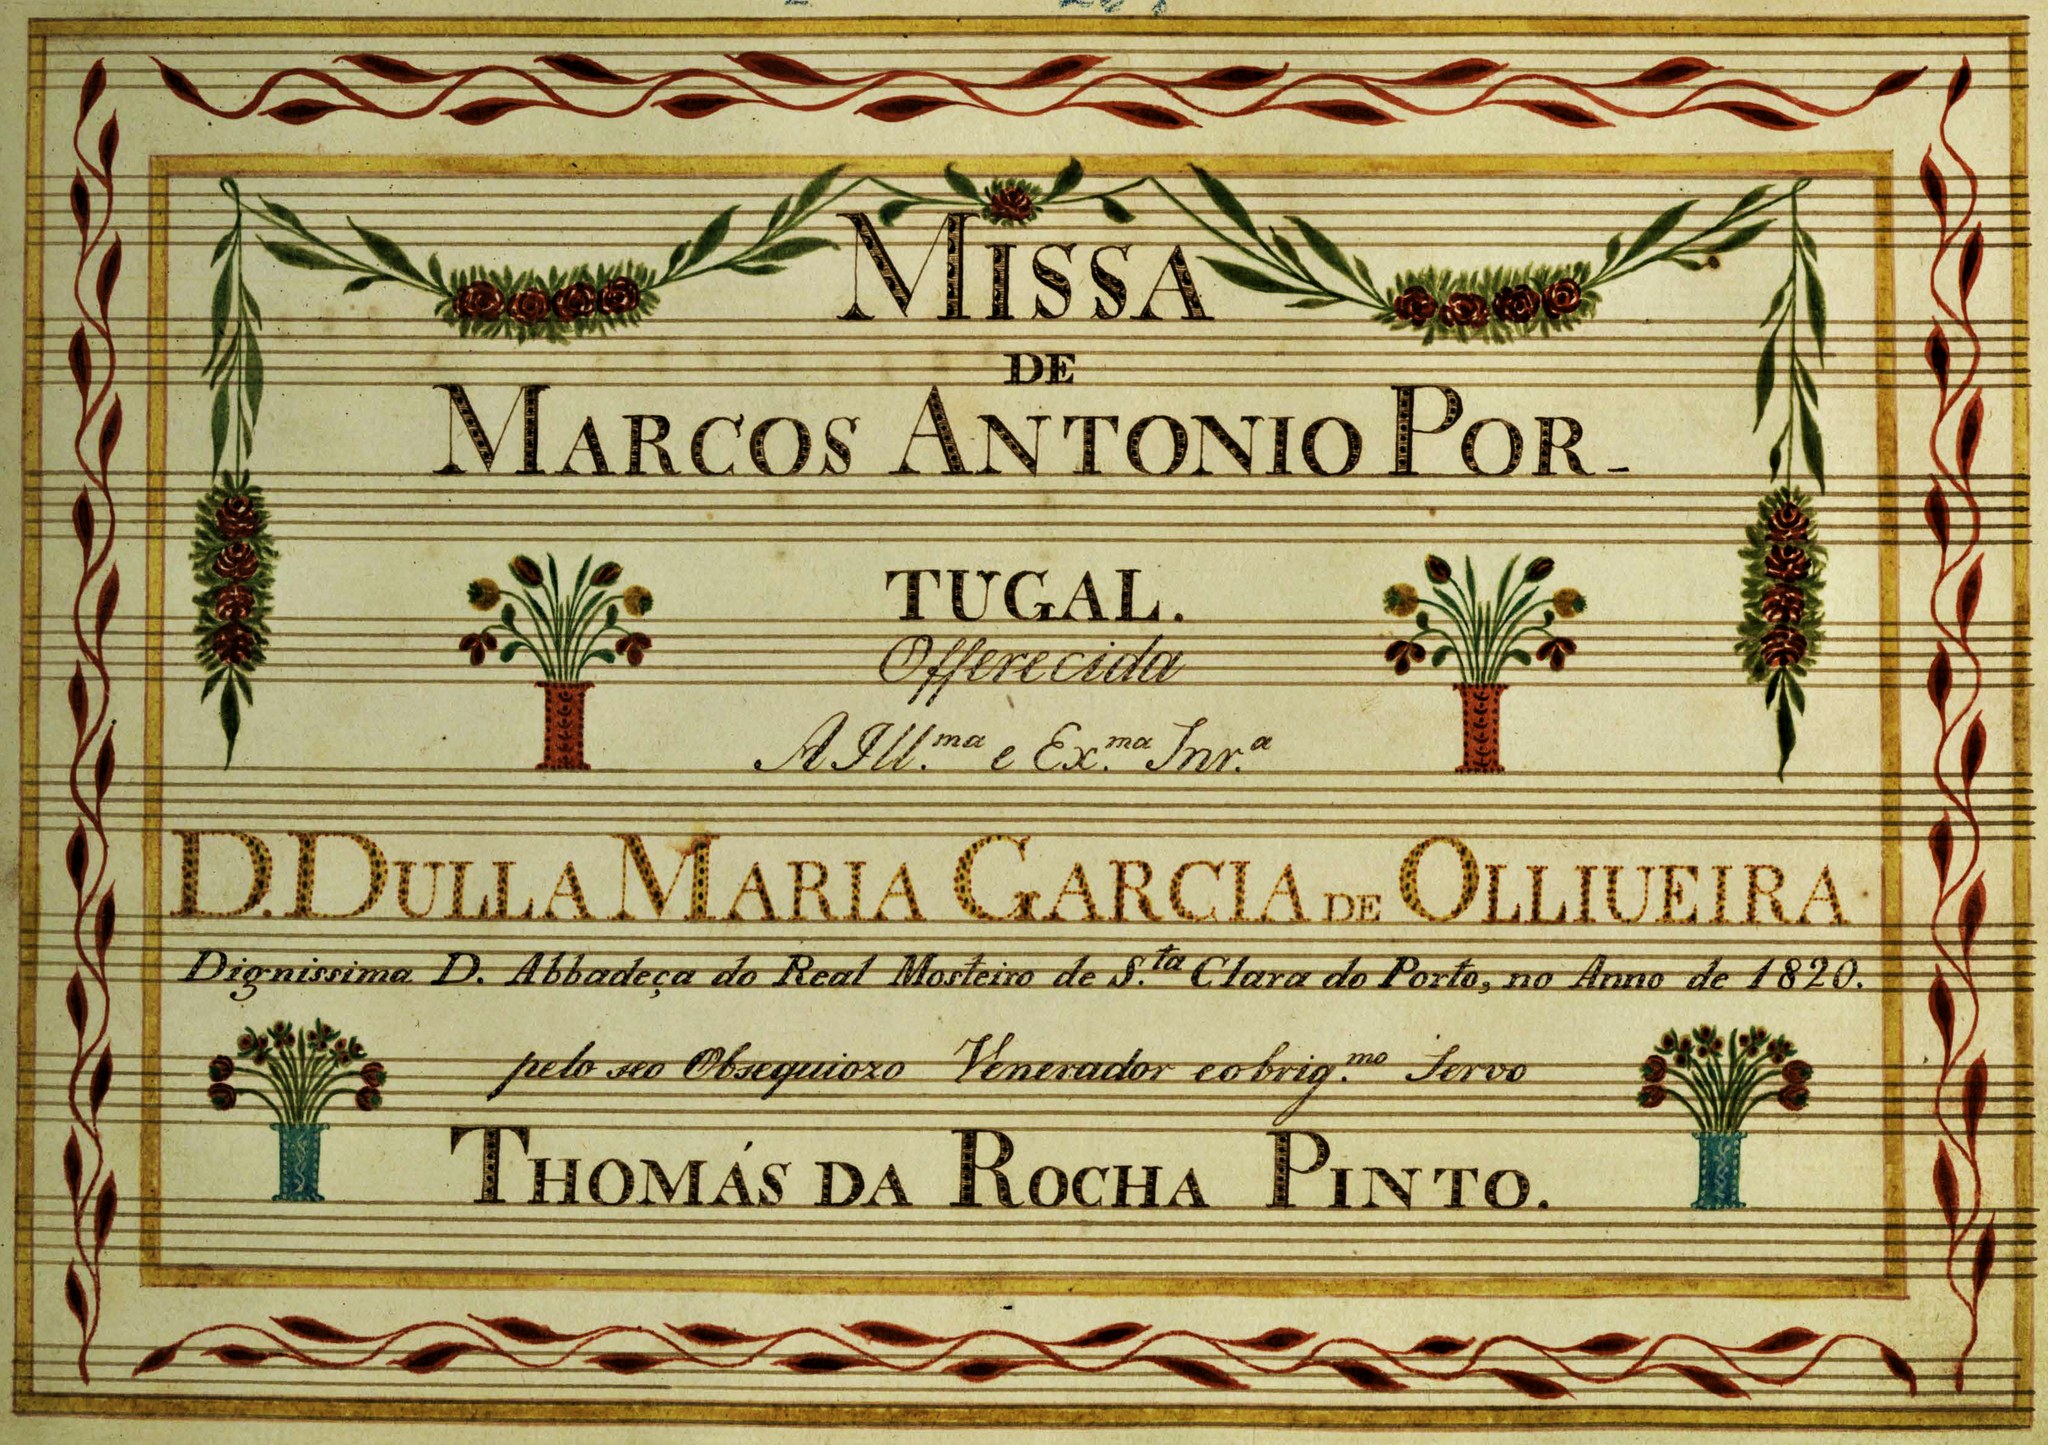 MISSA
DE
MARCOS ANTONIO POR-
TUGAL.
Offerecida
A Ill.ma e Ex.ma Snr.a
D. DULLA MARIA GARCIA DE OLLIUEIRA
Dignissima D. Abbadeça do Real Mosteiro de S.ta Clara do Porto, no Anno de 1820.
pelo seo Obsequiozo Venerador eobrig.mo Servo
THOMÁS DA ROCHA PINTO.